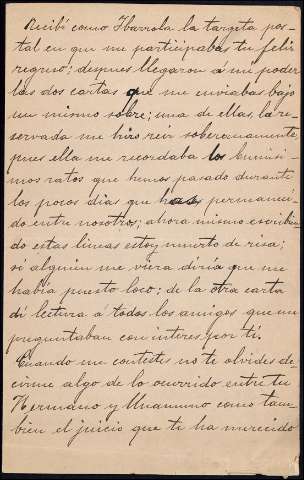 Recibí como Ibarrola la targeta pos-
tal en que me participabas tu feliz
regreso; despues llegaron á mi poder
las dos cartas que me enviabas bajo
un mismo sobre; una de ellas, la re-
servada me hizo reir soberanamente
pues ella me recordaba los buenísi-
mos ratos que hemos pasado durante
los pocos dias que has permaneci-
do entre nosotros; ahora mismo escribien-
do estas lineas estoy muerto de risa;
si alguien me viera diria que me
había puesto loco; de la otra carta
dí lectura á todos los amigos que me
preguntaban con interes por tí.
Cuando me contestes no te olvides de-
cirme algo de lo ocurrido entre tu
Hermano y Unamuno como tam-
bien el juicio que te ha merecido